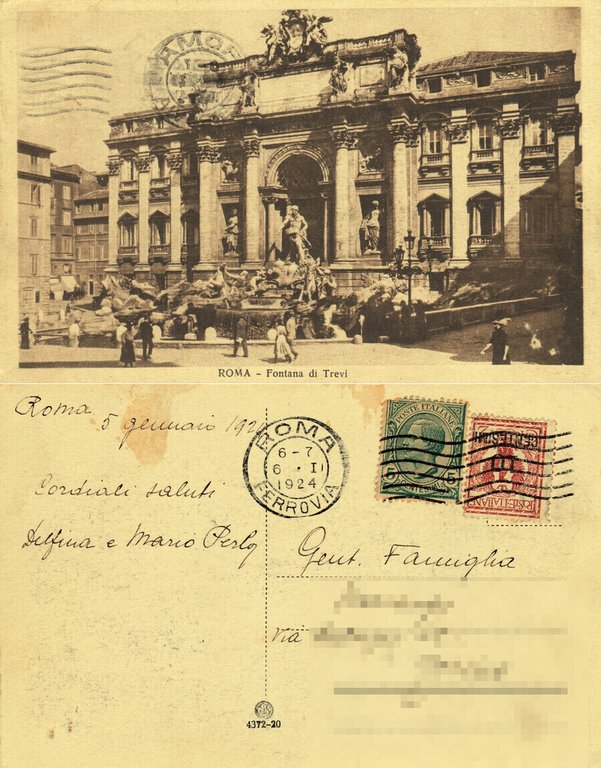 ROMA - Fontana di Trevi
Roma 5 gennaio 192
ROMA
6-7
6 · II
1924
FERROVIA
POSTE ITALIANE
5 5
CENTESIMI
POSTE ITALIANE
Cordiali saluti
Delfina e Mario
Gent. Famiglia
Via
4372-20